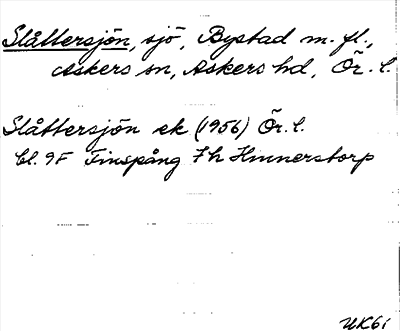 Slåttersjön, sjö, Bystad m. fl.,
Askers sn, Askers hd, Ör. l.
Slåttersjön ek (1956) Ör. l.
bl. 9F Finspång 7h Hinnerstorp
UK61